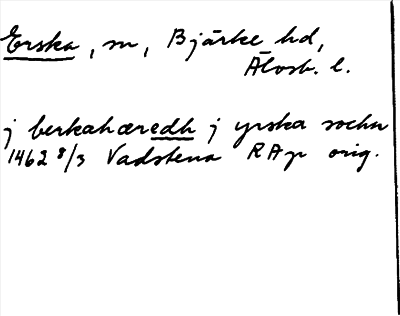 Erska, sn, Bjärke hd,
Älvsb. l.
j berkahæredh j yrska sochn
1462 8/3 Vadstena RAp orig.